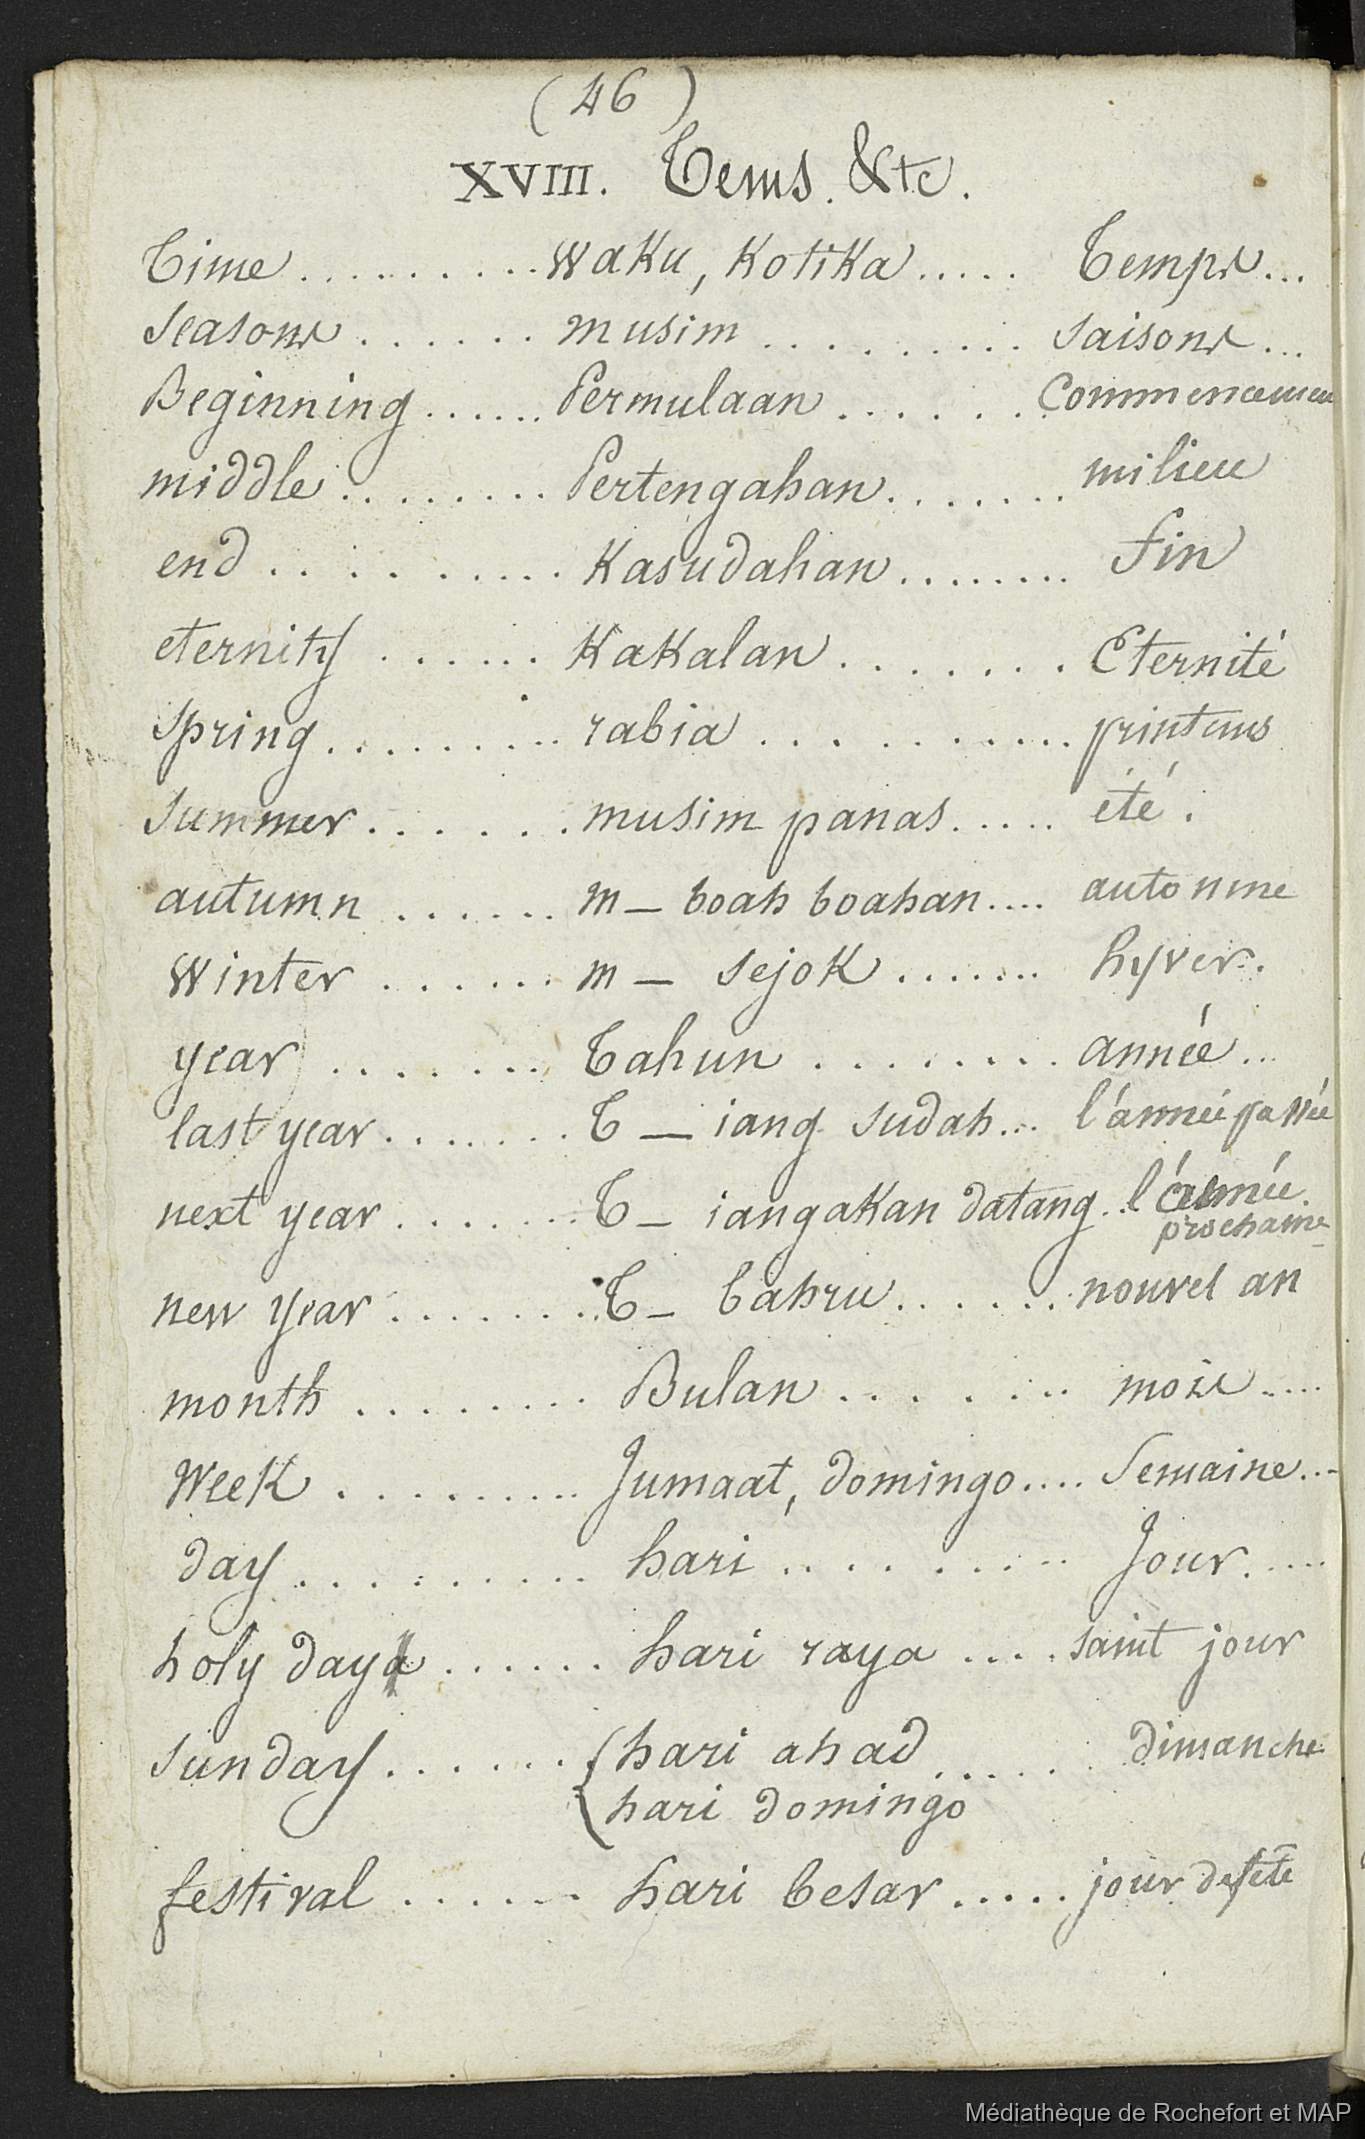 ( 46 )
XVIII. Tems. &tc.
Time .......... waku, Kotika ..... Temps ...
Seasons ...... musim .......... saisons ...
Beginning ...... Permulaan ....... Commencemen
middle ........ Pertengahan ....... milieu
end .......... Kasudahan ........ fin
eternity ...... Kakalan ....... Eternité
Spring ......... rabia ........... printems
Summer ...... musim panas ..... été.
autumn ...... m_ boah boahan .... automne
Winter ...... m_ sejok ....... hyver.
year ....... Tahun ........ année ...
last year ....... T_ iang sudah ... l'année passée
next year ....... T_ iangakan datang .. l'année
prochaine
new year ....... T_ bahru ...... nouvel an
month ........ Bulan ....... mois .....
Week ......... Jumaat, domingo .... Semaine ...
day .......... hari ......... Jour .....
holy day ...... hari raya .... saint jour
Sunday ...... { hari ahad ...... dimanche
{ hari domingo
festival ...... hari besar ..... jour de fête
Médiathèque de Rochefort et MAP